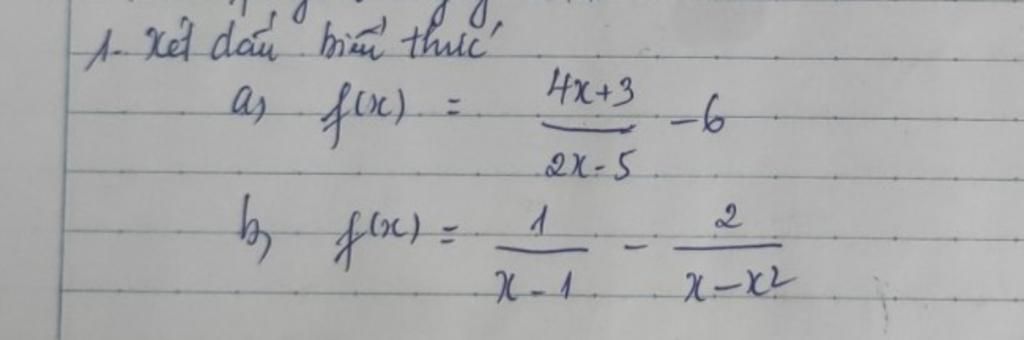 1. Xét dấu biểu thức
a, f(x) = \frac{4x+3}{2x-5} - 6
b, f(x) = \frac{1}{x-1} - \frac{2}{x-x^2}